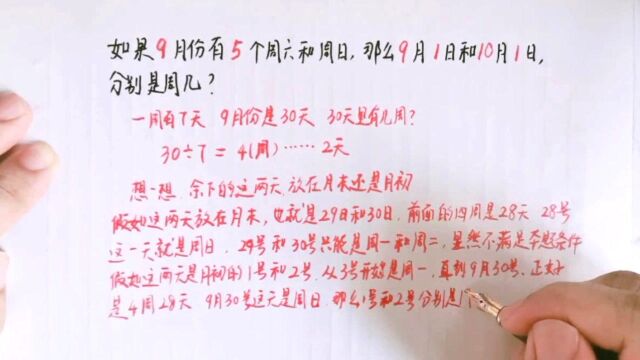 如果9月份有5个周六和周日,那么9月1日和10月1日,
分别是周几?
一周有7天 9月份是30天 30天里有几周?
30÷7=4(周)……2天
想一想,余下的这两天,放在月末还是月初
假如这两天放在月末,也就是29日和30日,前面的四周是28天 28号
这一天就是周日,29号和30号只能是周一和周二,显然不满足本题条件
假如这两天是月初的1号和2号,从3号开始是周一,直到9月30号,正好
是4周28天 9月30号这天是周日,那么1号和2号分别是